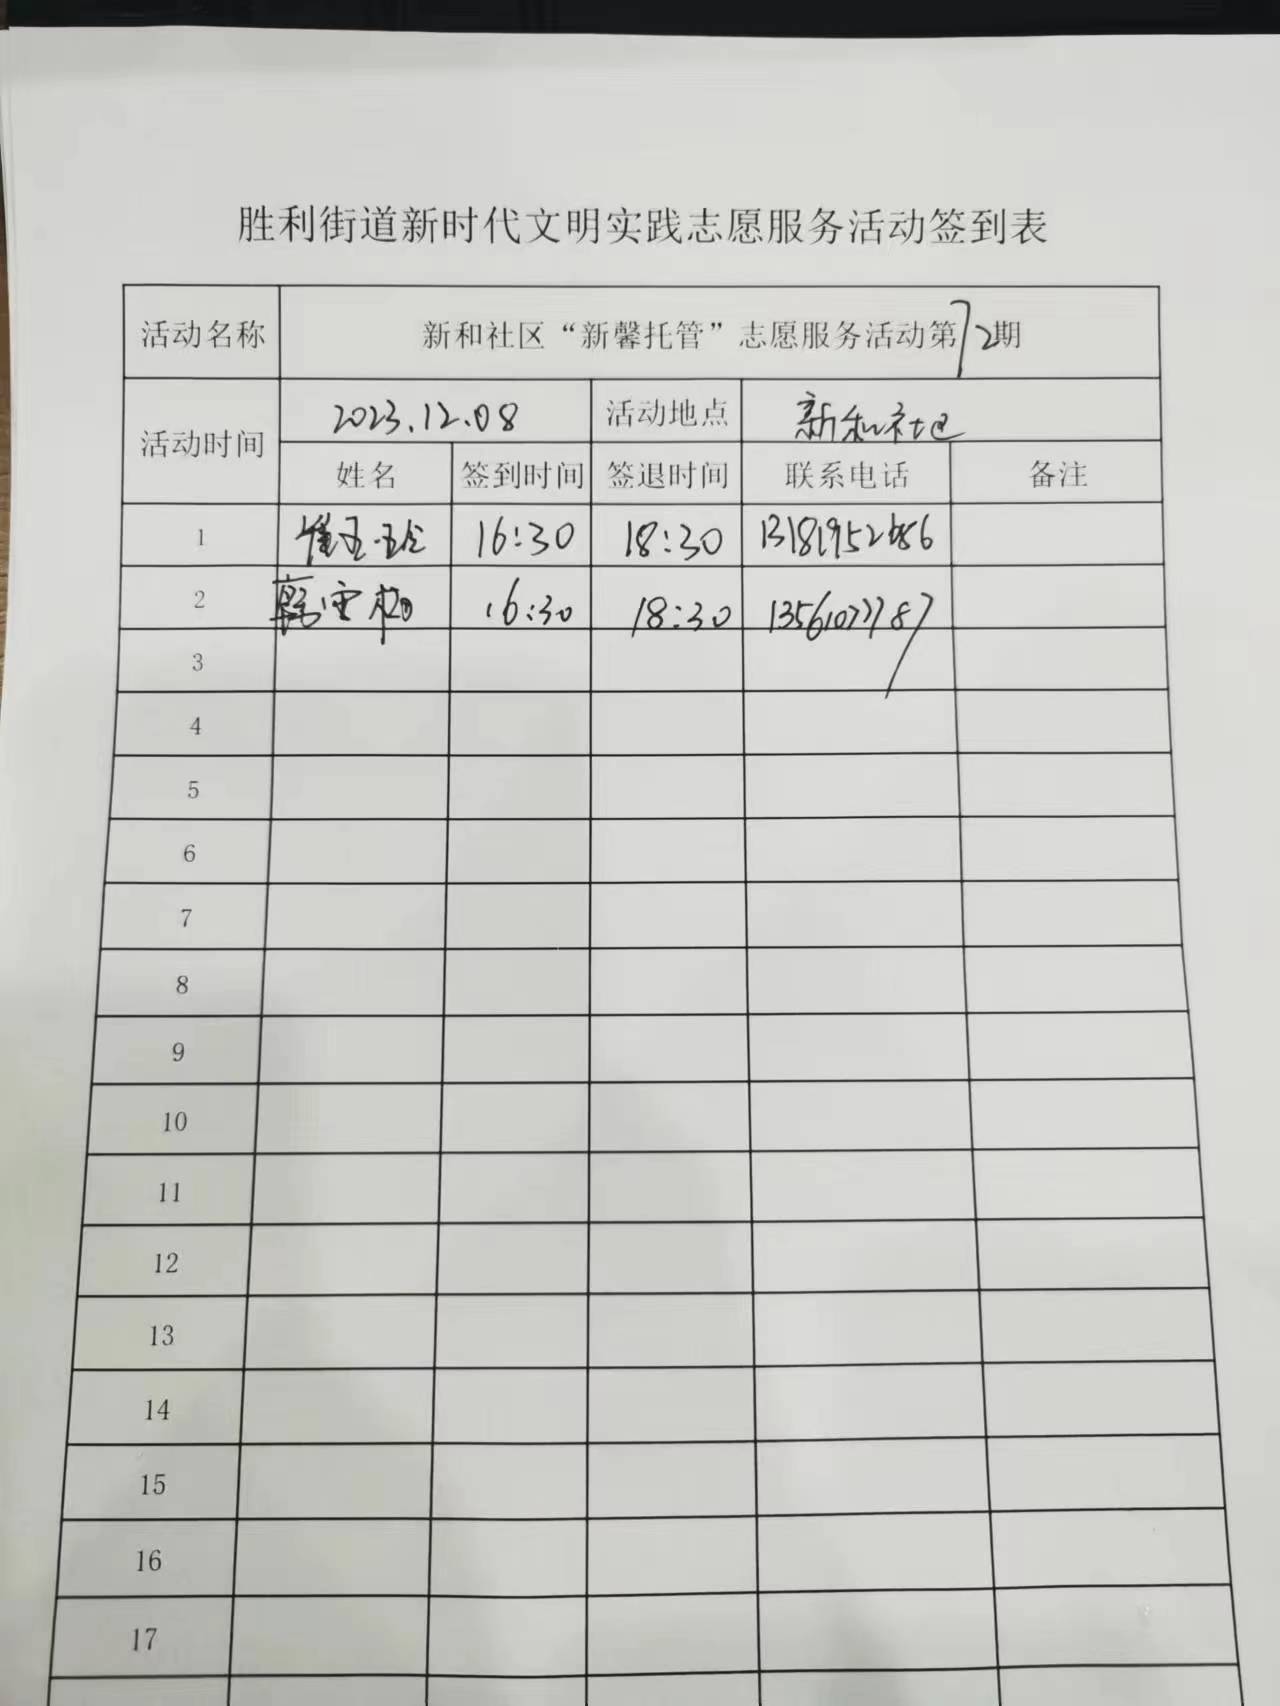 胜利街道新时代文明实践志愿服务活动签到表
活动名称 新和社区“新馨托管”志愿服务活动第72期
活动时间 2023.12.08 活动地点 新和社区
姓名 签到时间 签退时间 联系电话 备注
1 16:30 18:30
2 16:30 18:30
3
4
5
6
7
8
9
10
11
12
13
14
15
16
17